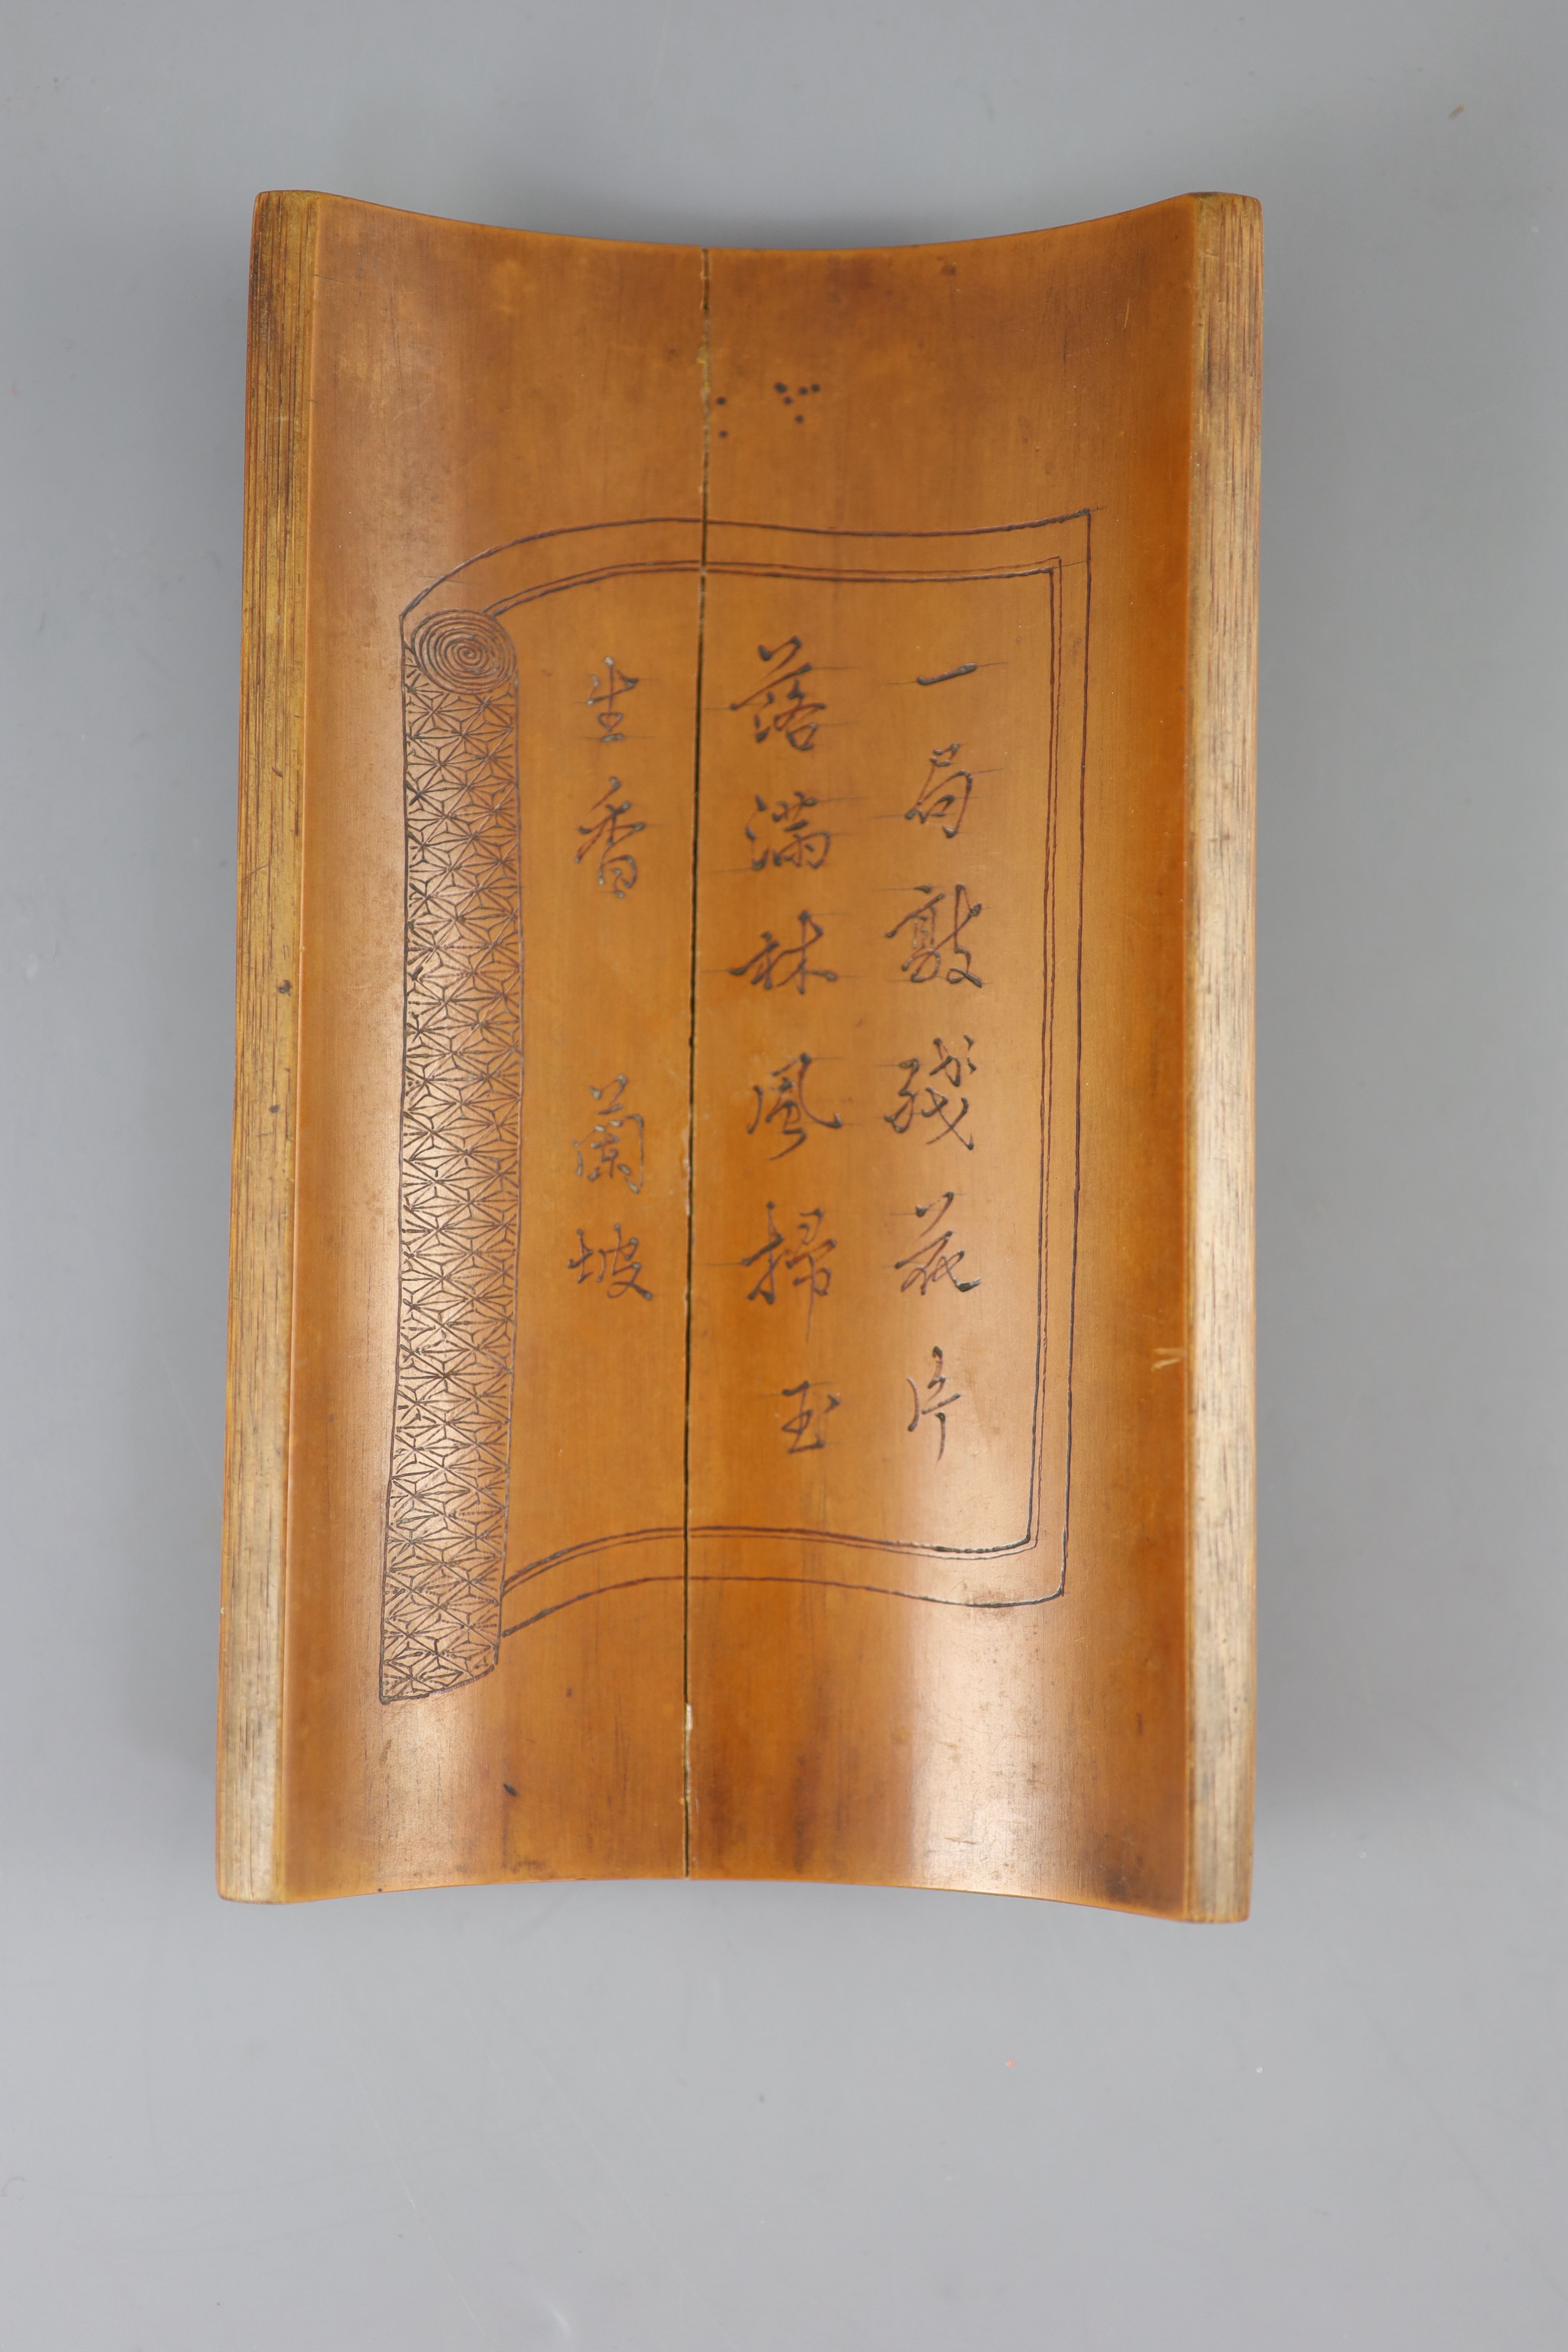 一局敲殘花片
落滿林風掃玉
生香 蘭坡